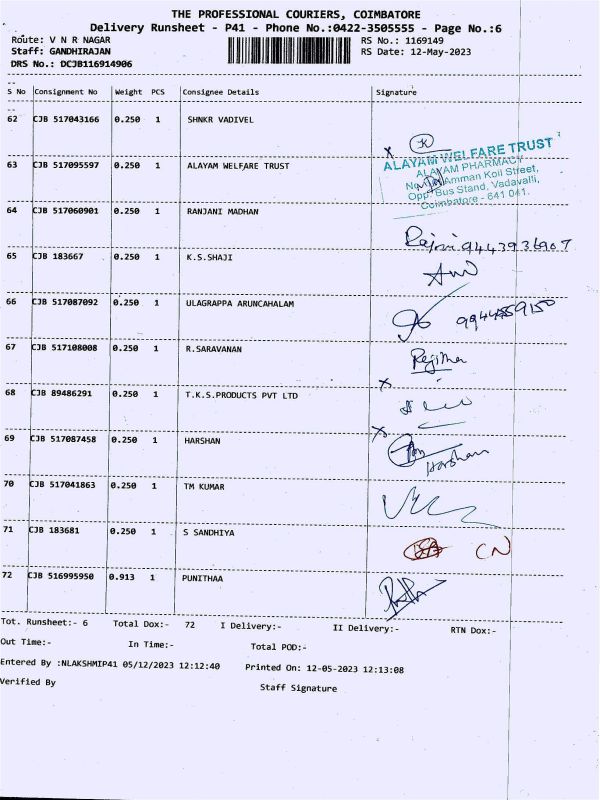 THE PROFESSIONAL COURIERS, COIMBATORE
Delivery Runsheet - P41 - Phone No.:0422-3505555 - Page No.:6
Route: V N R NAGAR RS No.: 1169149
Staff: GANDHIRAJAN RS Date: 12-May-2023
DRS No.: DCJB116914906
S No Consignment No Weight PCS Consignee Details Signature
62 CJB 517043166 0.250 1 SHNKR VADIVEL
63 CJB 517095597 0.250 1 ALAYAM WELFARE TRUST
ALAYAM WELFARE TRUST
ALAYAM PHARMACY
Amman Koil Street,
Opp. Bus Stand, Vadavalli,
Coimbatore - 641 041.
64 CJB 517060901 0.250 1 RANJANI MADHAN
65 CJB 183667 0.250 1 K.S.SHAJI
66 CJB 517087092 0.250 1 ULAGRAPPA ARUNCAHALAM
67 CJB 517108008 0.250 1 R.SARAVANAN
68 CJB 89486291 0.250 1 T.K.S.PRODUCTS PVT LTD
69 CJB 517087458 0.250 1 HARSHAN Harshan
70 CJB 517041863 0.250 1 TM KUMAR
71 CJB 183681 0.250 1 S SANDHIYA CN
72 CJB 516995950 0.913 1 PUNITHAA
Tot. Runsheet:- 6 Total Dox:- 72 I Delivery:- II Delivery:- RTN Dox:-
Out Time:- In Time:- Total POD:-
Entered By :NLAKSHMIP41 05/12/2023 12:12:40 Printed On: 12-05-2023 12:13:08
Verified By Staff Signature